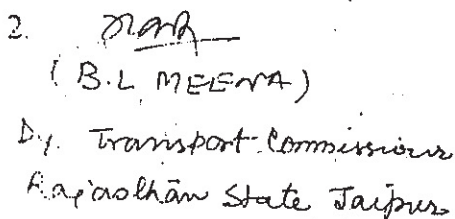 2.
(B.L. MEENA)
Dy. Transport Commissioner
Rajasthan State Jaipur